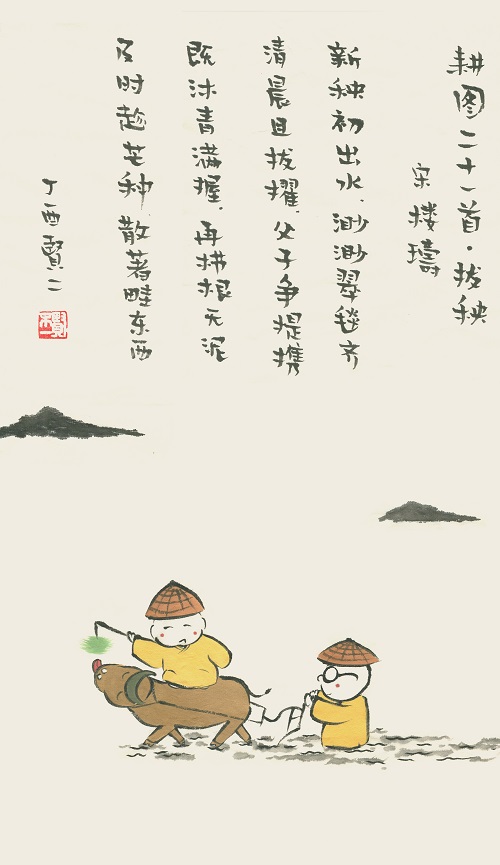 耕图二十一首·拔秧
宋 楼璹
新秧初出水,渺渺翠毯齐
清晨且拔擢,父子争提携
既沐青满握,再拂根无泥
及时趁芒种,散著畦东西
丁酉賢二